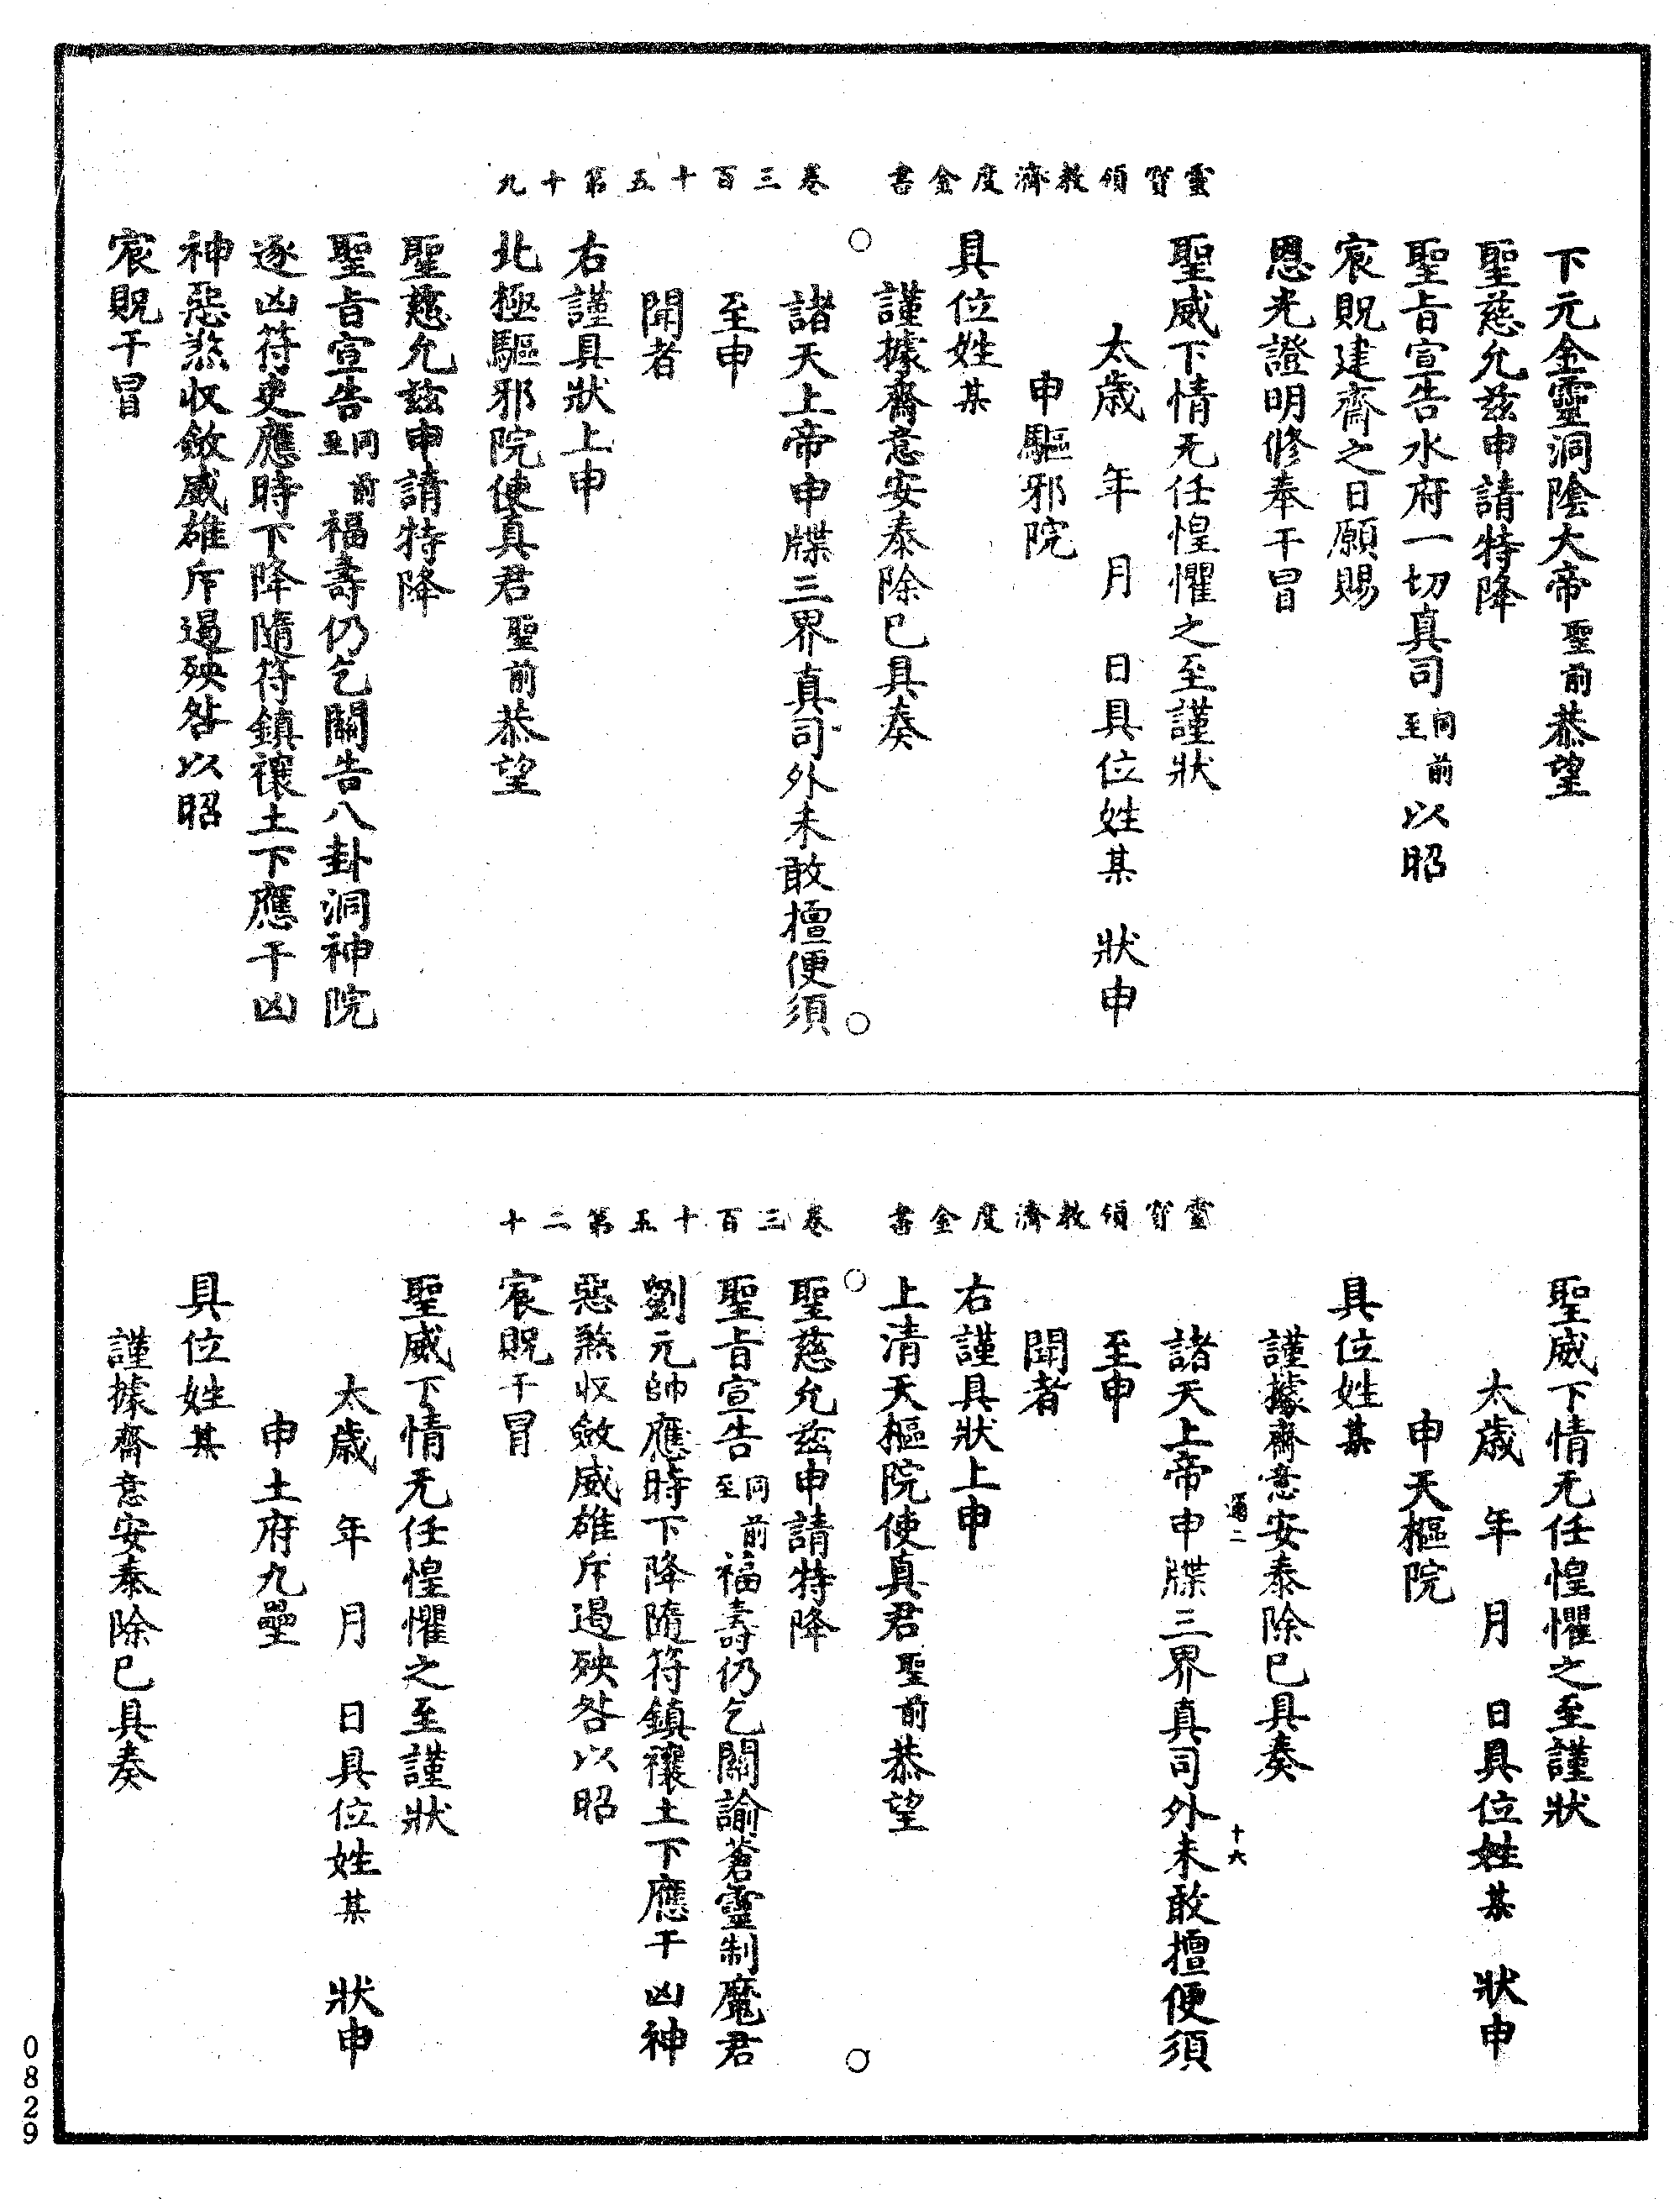 靈寶領教濟度金書
卷三百十五第十九
下元金靈洞陰大帝聖前恭望
聖慈允兹申請特降
聖旨宣告水府一切真司同前至以昭
宸貺建齋之日願賜
恩光證明修奉干冒
聖威下情无任惶懼之至謹狀
太歲 年 月 日具位姓某 狀申
申驅邪院
具位姓某
謹據齋意安泰除已具奏
諸天上帝申牒三界真司外未敢擅便須
至申
聞者
右謹具狀上申
北極驅邪院使真君聖前恭望
聖慈允兹申請特降
聖旨宣告同前至福壽仍乞關告八卦洞神院
逐凶符吏應時下降隨符鎮禳土下應干凶
神惡煞收斂威雄斥遏殃咎以昭
宸貺干冒
靈寶領教濟度金書
卷三百十五第二十
聖威下情无任惶懼之至謹狀
太歲 年 月 日具位姓某 狀申
申天樞院
具位姓某
謹據齋意安泰除已具奏
通二 十六
諸天上帝申牒三界真司外未敢擅便須
至申
聞者
右謹具狀上申
上清天樞院使真君聖前恭望
聖慈允兹申請特降
聖旨宣告同前至福壽仍乞關諭蒼靈制魔君
劉元帥應時下降隨符鎮禳土下應干凶神
惡煞収斂威雄斥遏殃咎以昭
宸貺干冒
聖威下情无任惶懼之至謹狀
太歲 年 月 日具位姓某 狀申
申土府九壘
具位姓某
謹據齋意安泰除已具奏
0829